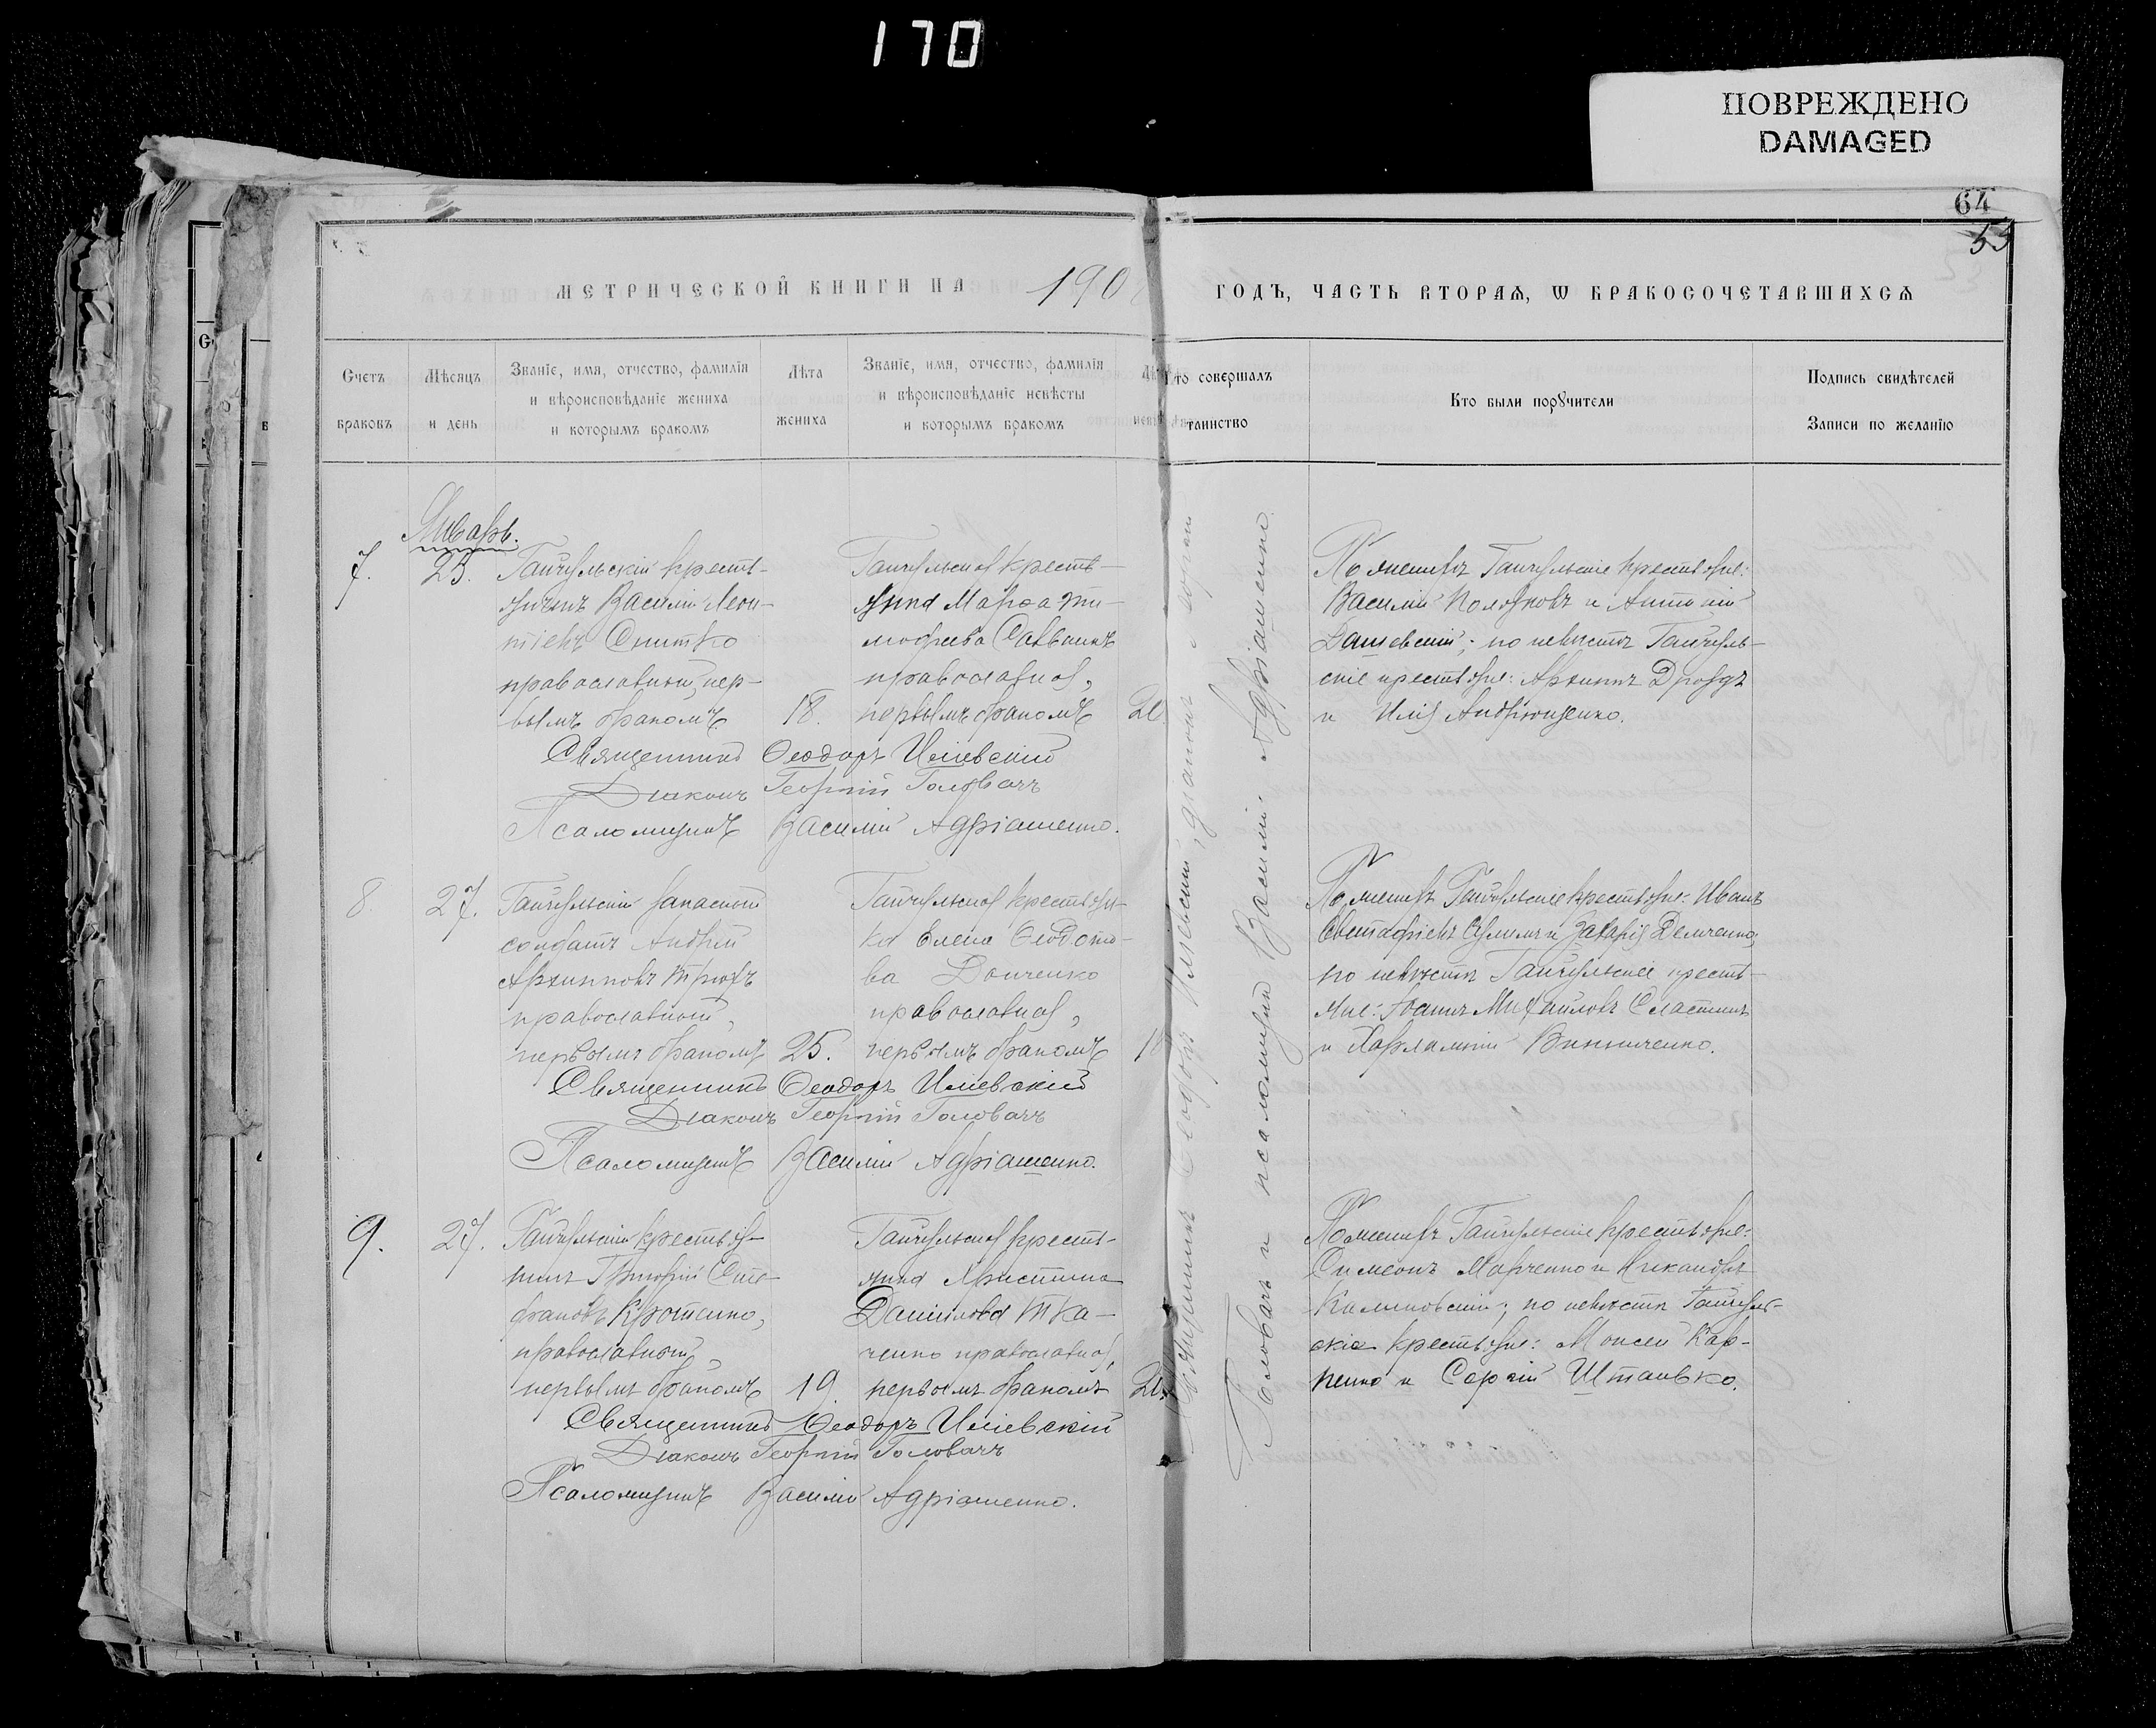 170
ПОВРЕЖДЕНО
DAMAGED
64
53
МЕТРИЧЕСКОЙ КНИГИ НА 190
ГОДЪ, ЧАСТЬ ВТОРАѦ, Ѡ БРАКОСОЧЕТАВШИХСѦ
Счетъ
браковъ
Мѣсяцъ
и день
Званіе, имя, отчество, фамилія
и вѣроисповѣданіе жениха
и которымъ бракомъ
Лѣта
жениха
Званіе, имя, отчество, фамилія
и вѣроисповѣданіе невѣсты
и которымъ бракомъ
Кто совершалъ
таинство
Кто были порꙋчители
Подпись свидѣтелей
Записи по желанію
Январь.
7.
25.
Гайчульскій кресть-
янинъ Василій Леон-
тіевъ Снитко
православный, пер-
вымъ бракомъ
18.
Гайчульская кресть-
янка Марѳа Ти-
мофеева Саввинъ
православная,
первымъ бракомъ
20
По женихѣ Гайчульскіе крестьяне:
Василій Полозковъ и Антоній
Дашевскій; по невѣстѣ Гайчуль-
скіе крестьяне: Архипъ Дроздъ
и Илія Андрющенко.
Священникъ Ѳеодоръ Иліевскій
Діаконъ Георгій Головачъ
Псаломщикъ Василій Адріашенко.
8
27.
Гайчульскій запасной
солдатъ Андрей
Архиповъ Трюхъ
православный,
первымъ бракомъ
25.
Гайчульская крестьян-
ка Елена Ѳеодото-
ва Донченко
православная,
первымъ бракомъ
По женихѣ Гайчульскіе крестьяне: Иванъ
Евстафіевъ Сулимъ и Захарія Демченко;
по невѣстѣ Гайчульскіе кресть-
яне: Іоаннъ Михайловъ Сластинъ
и Харлампій Винниченко.
Священникъ Ѳеодоръ Иліевскій
Діаконъ Георгій Головачъ
Псаломщикъ Василій Адріашенко.
9.
27.
Гайчульскій крестья-
нинъ Григорій Сте-
фановъ Кротенко,
православный
первымъ бракомъ
19
Гайчульская кресть-
янка Христина
Даніилова Тка-
ченко православная,
первымъ бракомъ
20
По женихѣ Гайчульскіе крестьяне:
Симеонъ Марченко и Никандръ
Калиновскій; по невѣстѣ Гайчуль-
скіе крестьяне: Моисей Кар-
пенко и Сергій Штанько.
Священникъ Ѳеодоръ Иліевскій
Діаконъ Георгій Головачъ
Псаломщикъ Василій Адріашенко.
Священникъ Ѳеодоръ Иліевскій, діаконъ Георгій
Головачъ и псаломщикъ Василій Адріашенко.